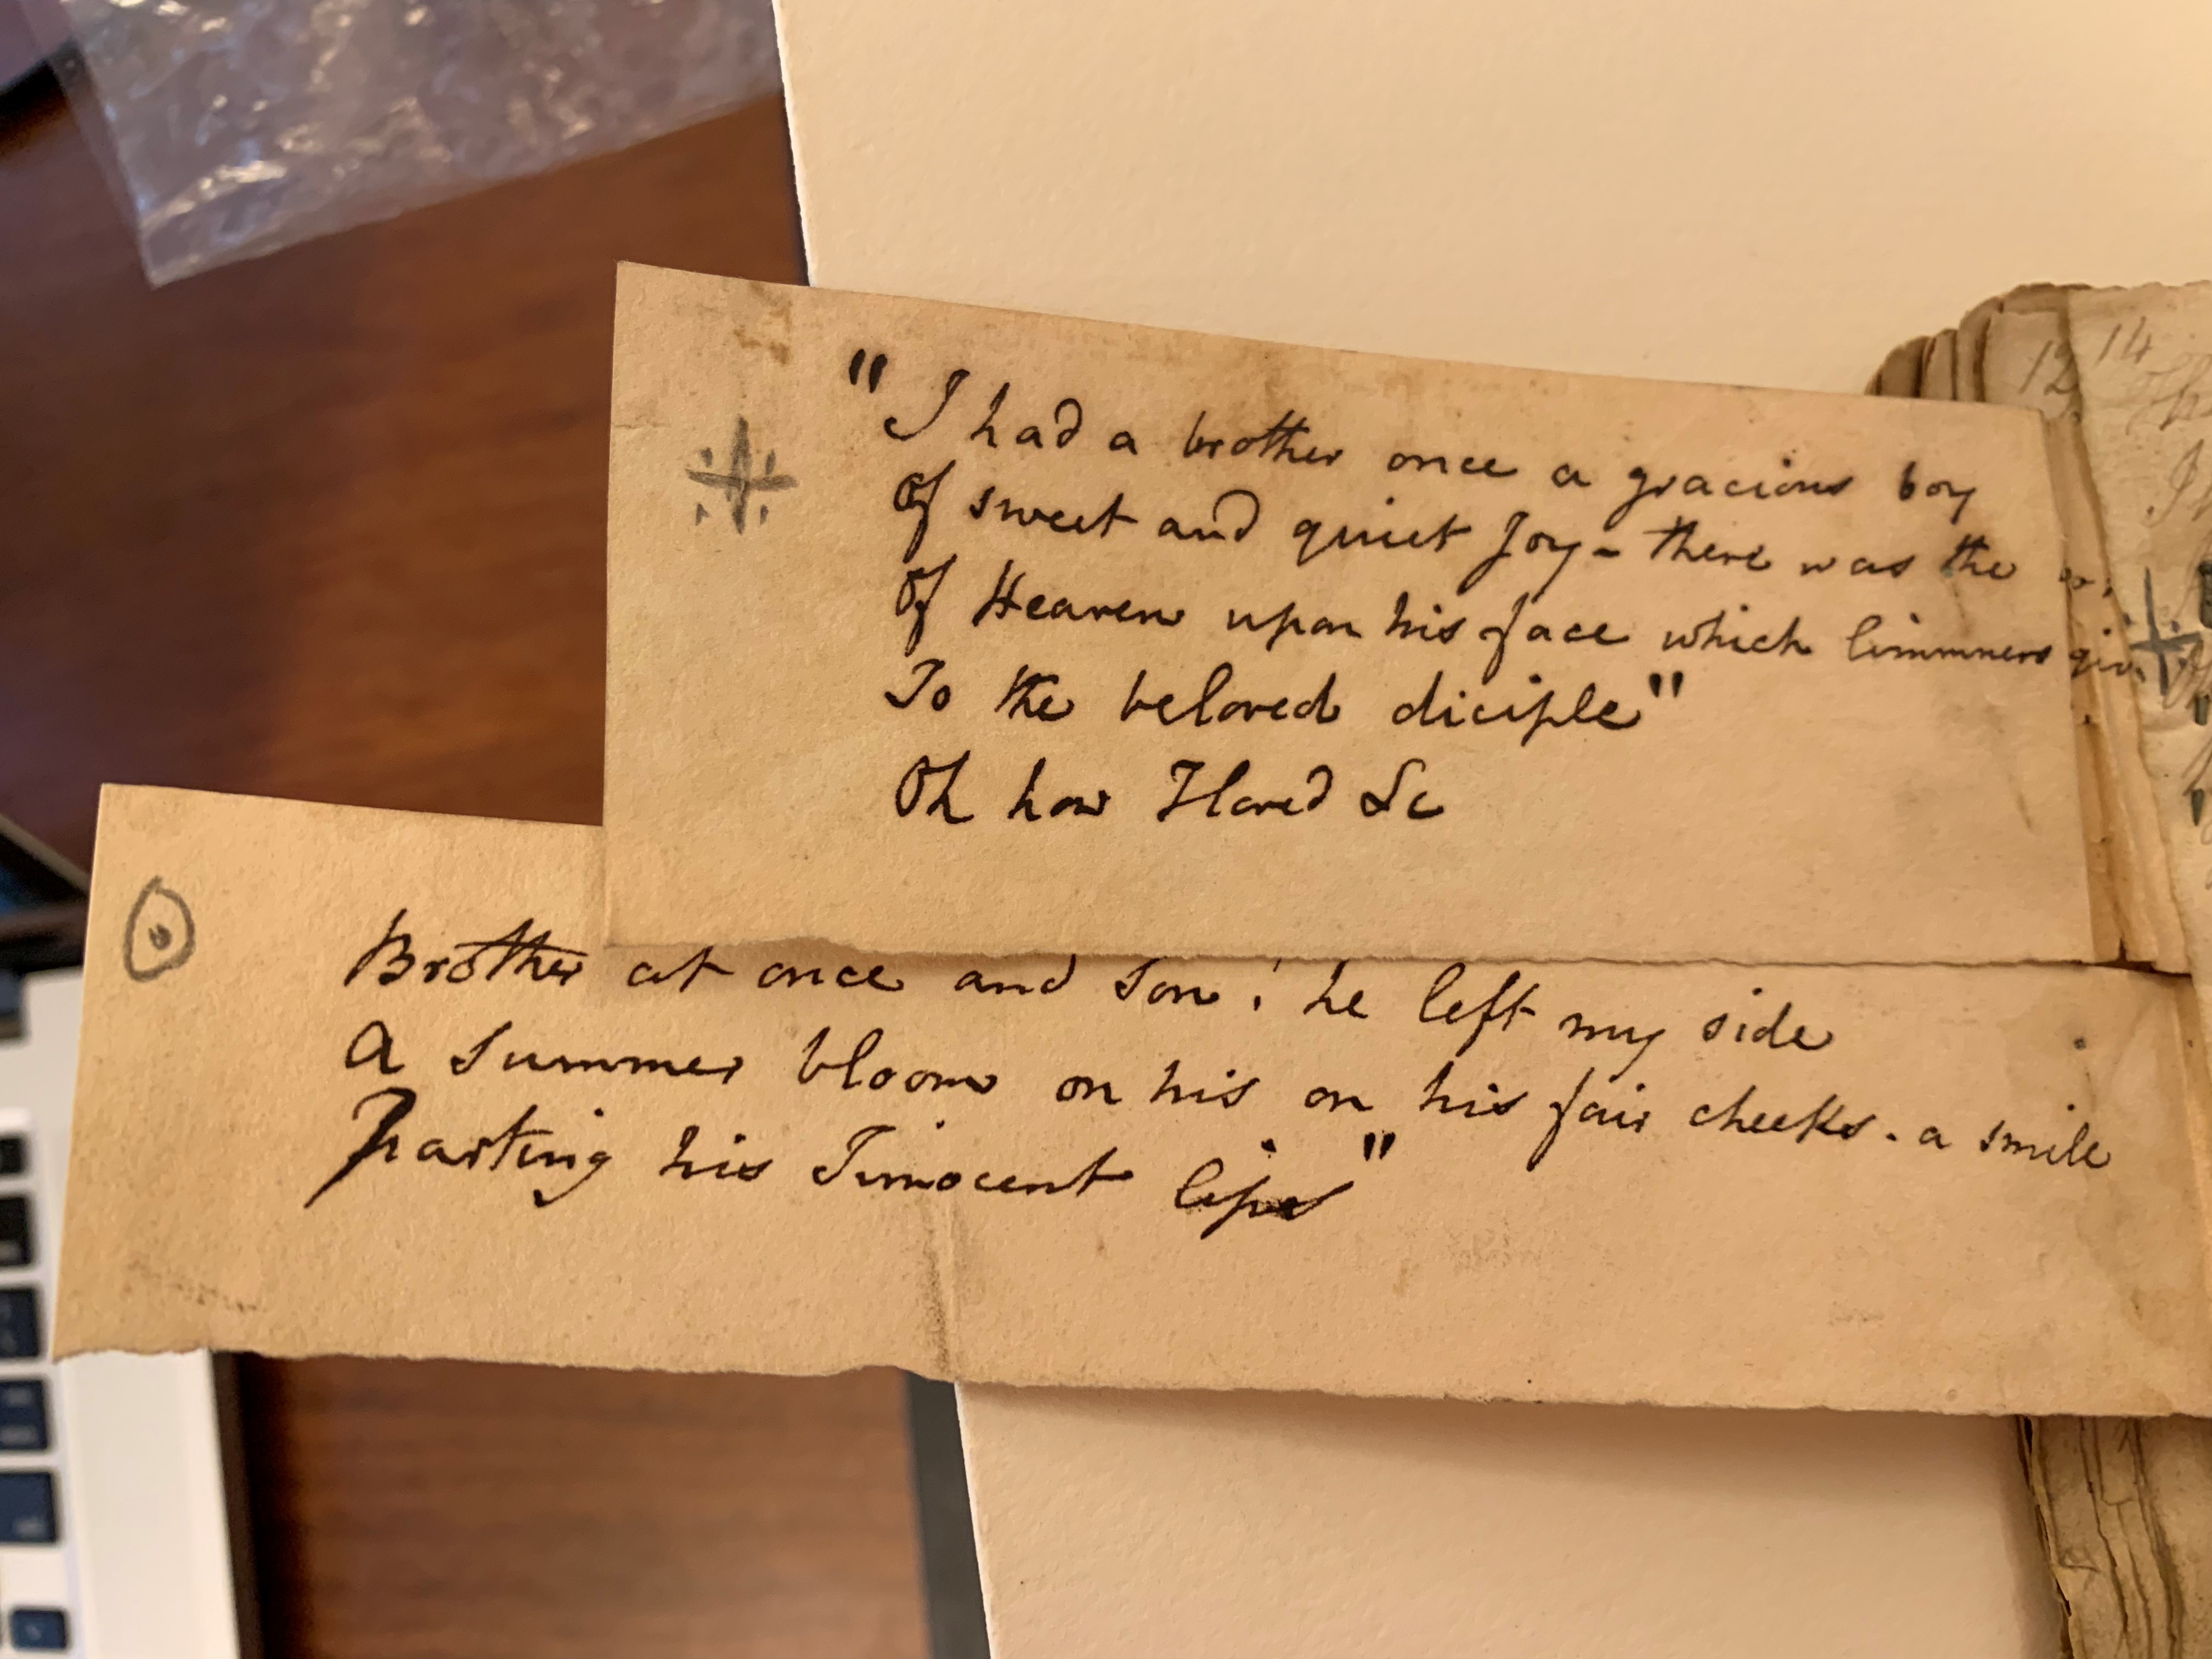 12 14
"I had a brother once a gracious boy
Of sweet and quiet Joy - there was the
Of Heaven upon his face which limmners giv
To the beloved diciple"
Oh how I loved &c
Brother at once and son! he left my side
A summer bloom on his on his fair cheeks. a smile
Parting his Innocent lips"